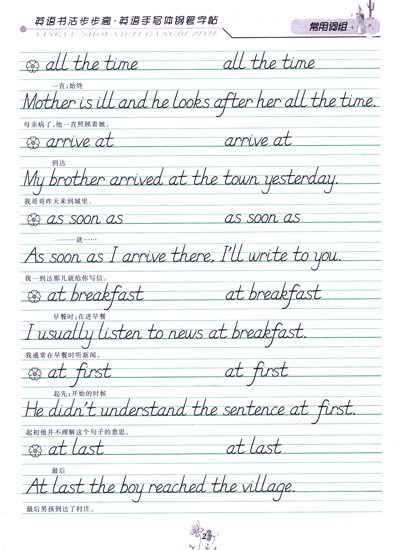 英语书法步步高·英语手写体钢笔字帖
YINGYU SHOUXIETI GANGBI ZITIE
常用词组
all the time all the time
一直;始终
Mother is ill and he looks after her all the time.
母亲病了,他一直照顾着她。
arrive at arrive at
到达
My brother arrived at the town yesterday.
我哥哥昨天来到城里。
as soon as as soon as
一………就……
As soon as I arrive there, I'll write to you.
我一到达那儿就给你写信。
at breakfast at breakfast
早餐时;在进早餐
I usually listen to news at breakfast.
我通常在早餐时听新闻。
at first at first
起先;开始的时候
He didn't understand the sentence at first.
起初他并不理解这个句子的意思。
at last at last
最后
At last the boy reached the village.
最后男孩到达了村庄。
2